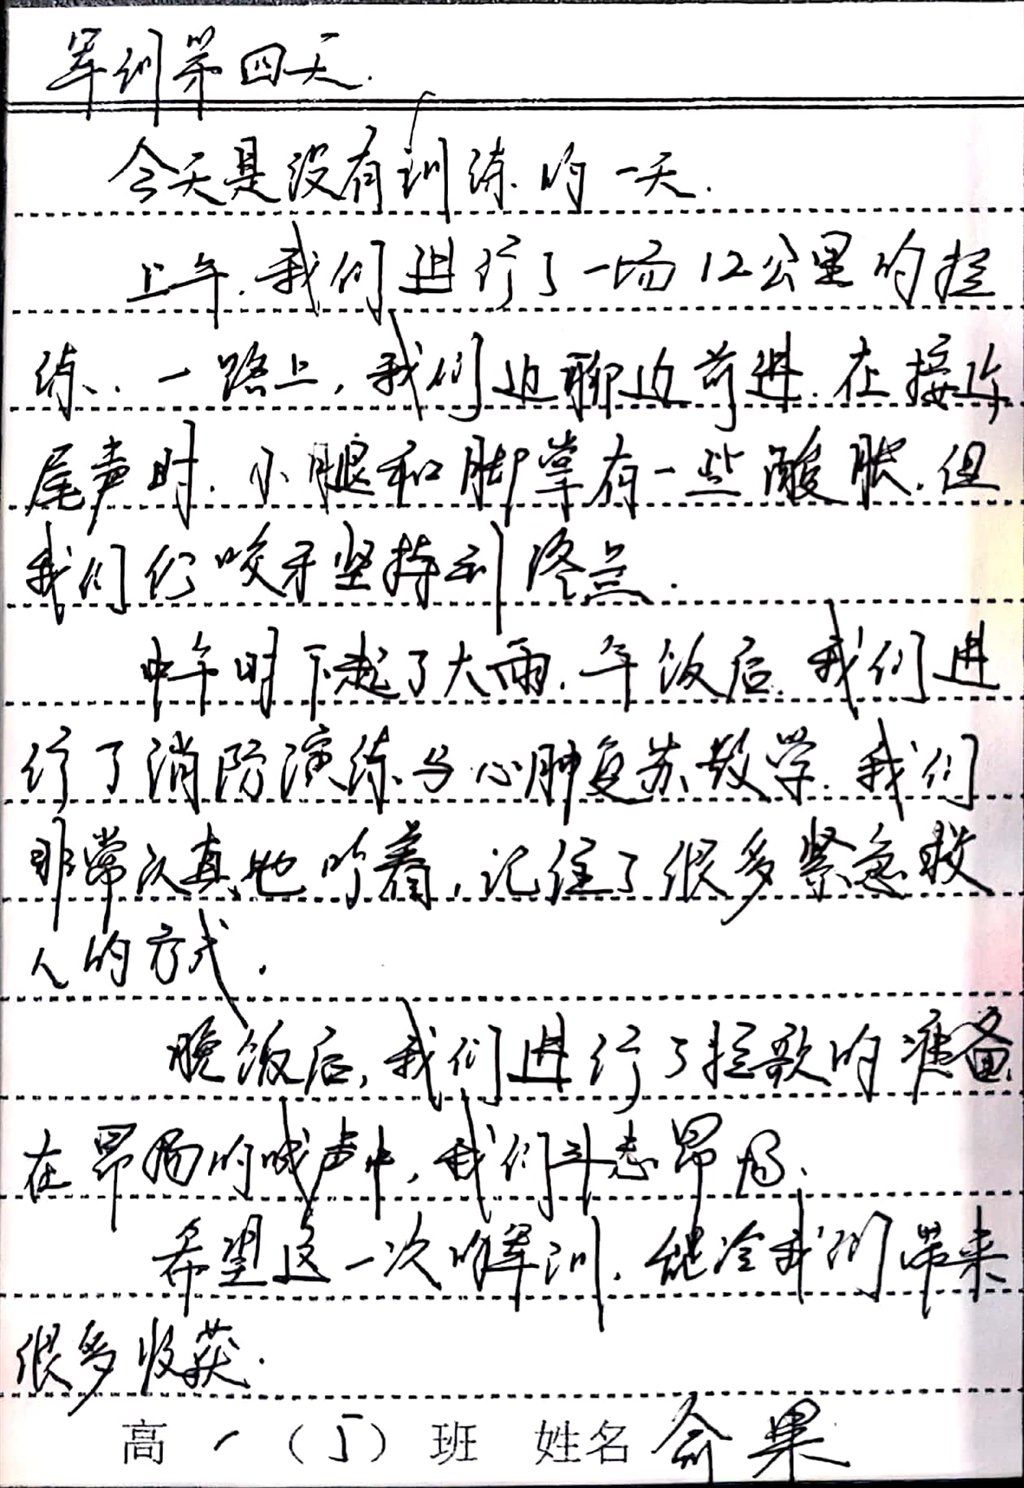 军训第四天.
今天是没有训练的一天.
上午.我们进行了一场12公里的拉
练..一路上,我们边聊边前进.在接近
尾声时.小腿和脚掌有一些酸胀.但
我们仍咬牙坚持到终点.
中午时下起了大雨.午饭后.我们进
行了消防演练与心肺复苏教学.我们
非常认真地听着,记住了很多紧急救
人的方式.
晚饭后,我们进行了拉歌的准备.
在昂扬的喊声中,我们斗志昂扬.
希望这一次的军训.能给我们带来
很多收获.
高一(5)班 姓名 俞果